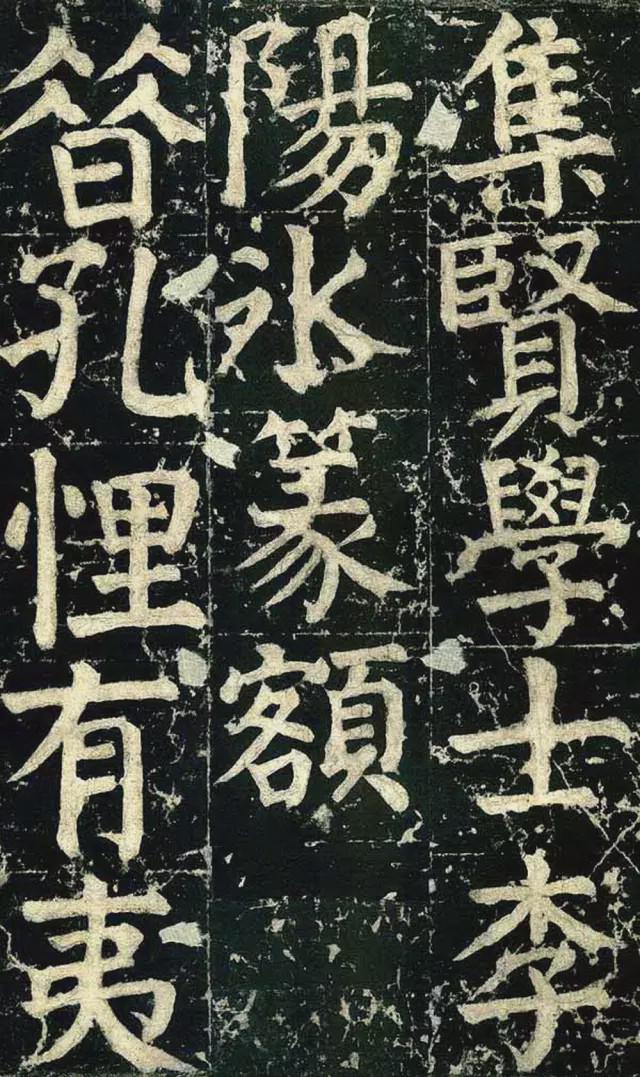 集賢學士李
陽冰篆額
昔孔悝有夷